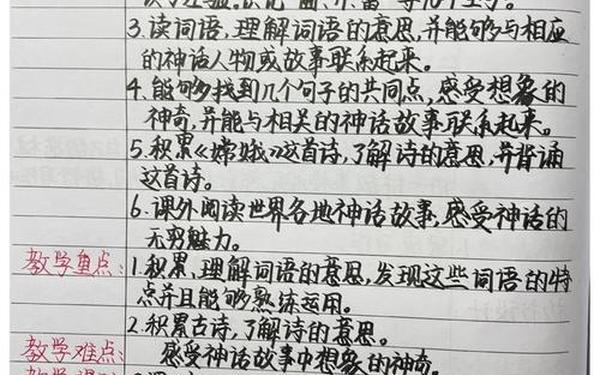 3.读词语,理解词语的意思,并能够与相应
的神话人物或故事联系起来。
4.能够找到几个句子的共同点,感受想象的
神奇,并能与相关的神话故事联系起来。
5.积累《嫦娥》这首诗,了解诗的意思,并背诵
这首诗。
6.课外阅读世界各地神话故事,感受神话的
无穷魅力。
教学重点:1.积累、理解词语的意思,发现这些词语的特
点并且能够熟练运用。
2.积累古诗,了解诗的意思。
教学难点:感受神话故事中想象的神奇。